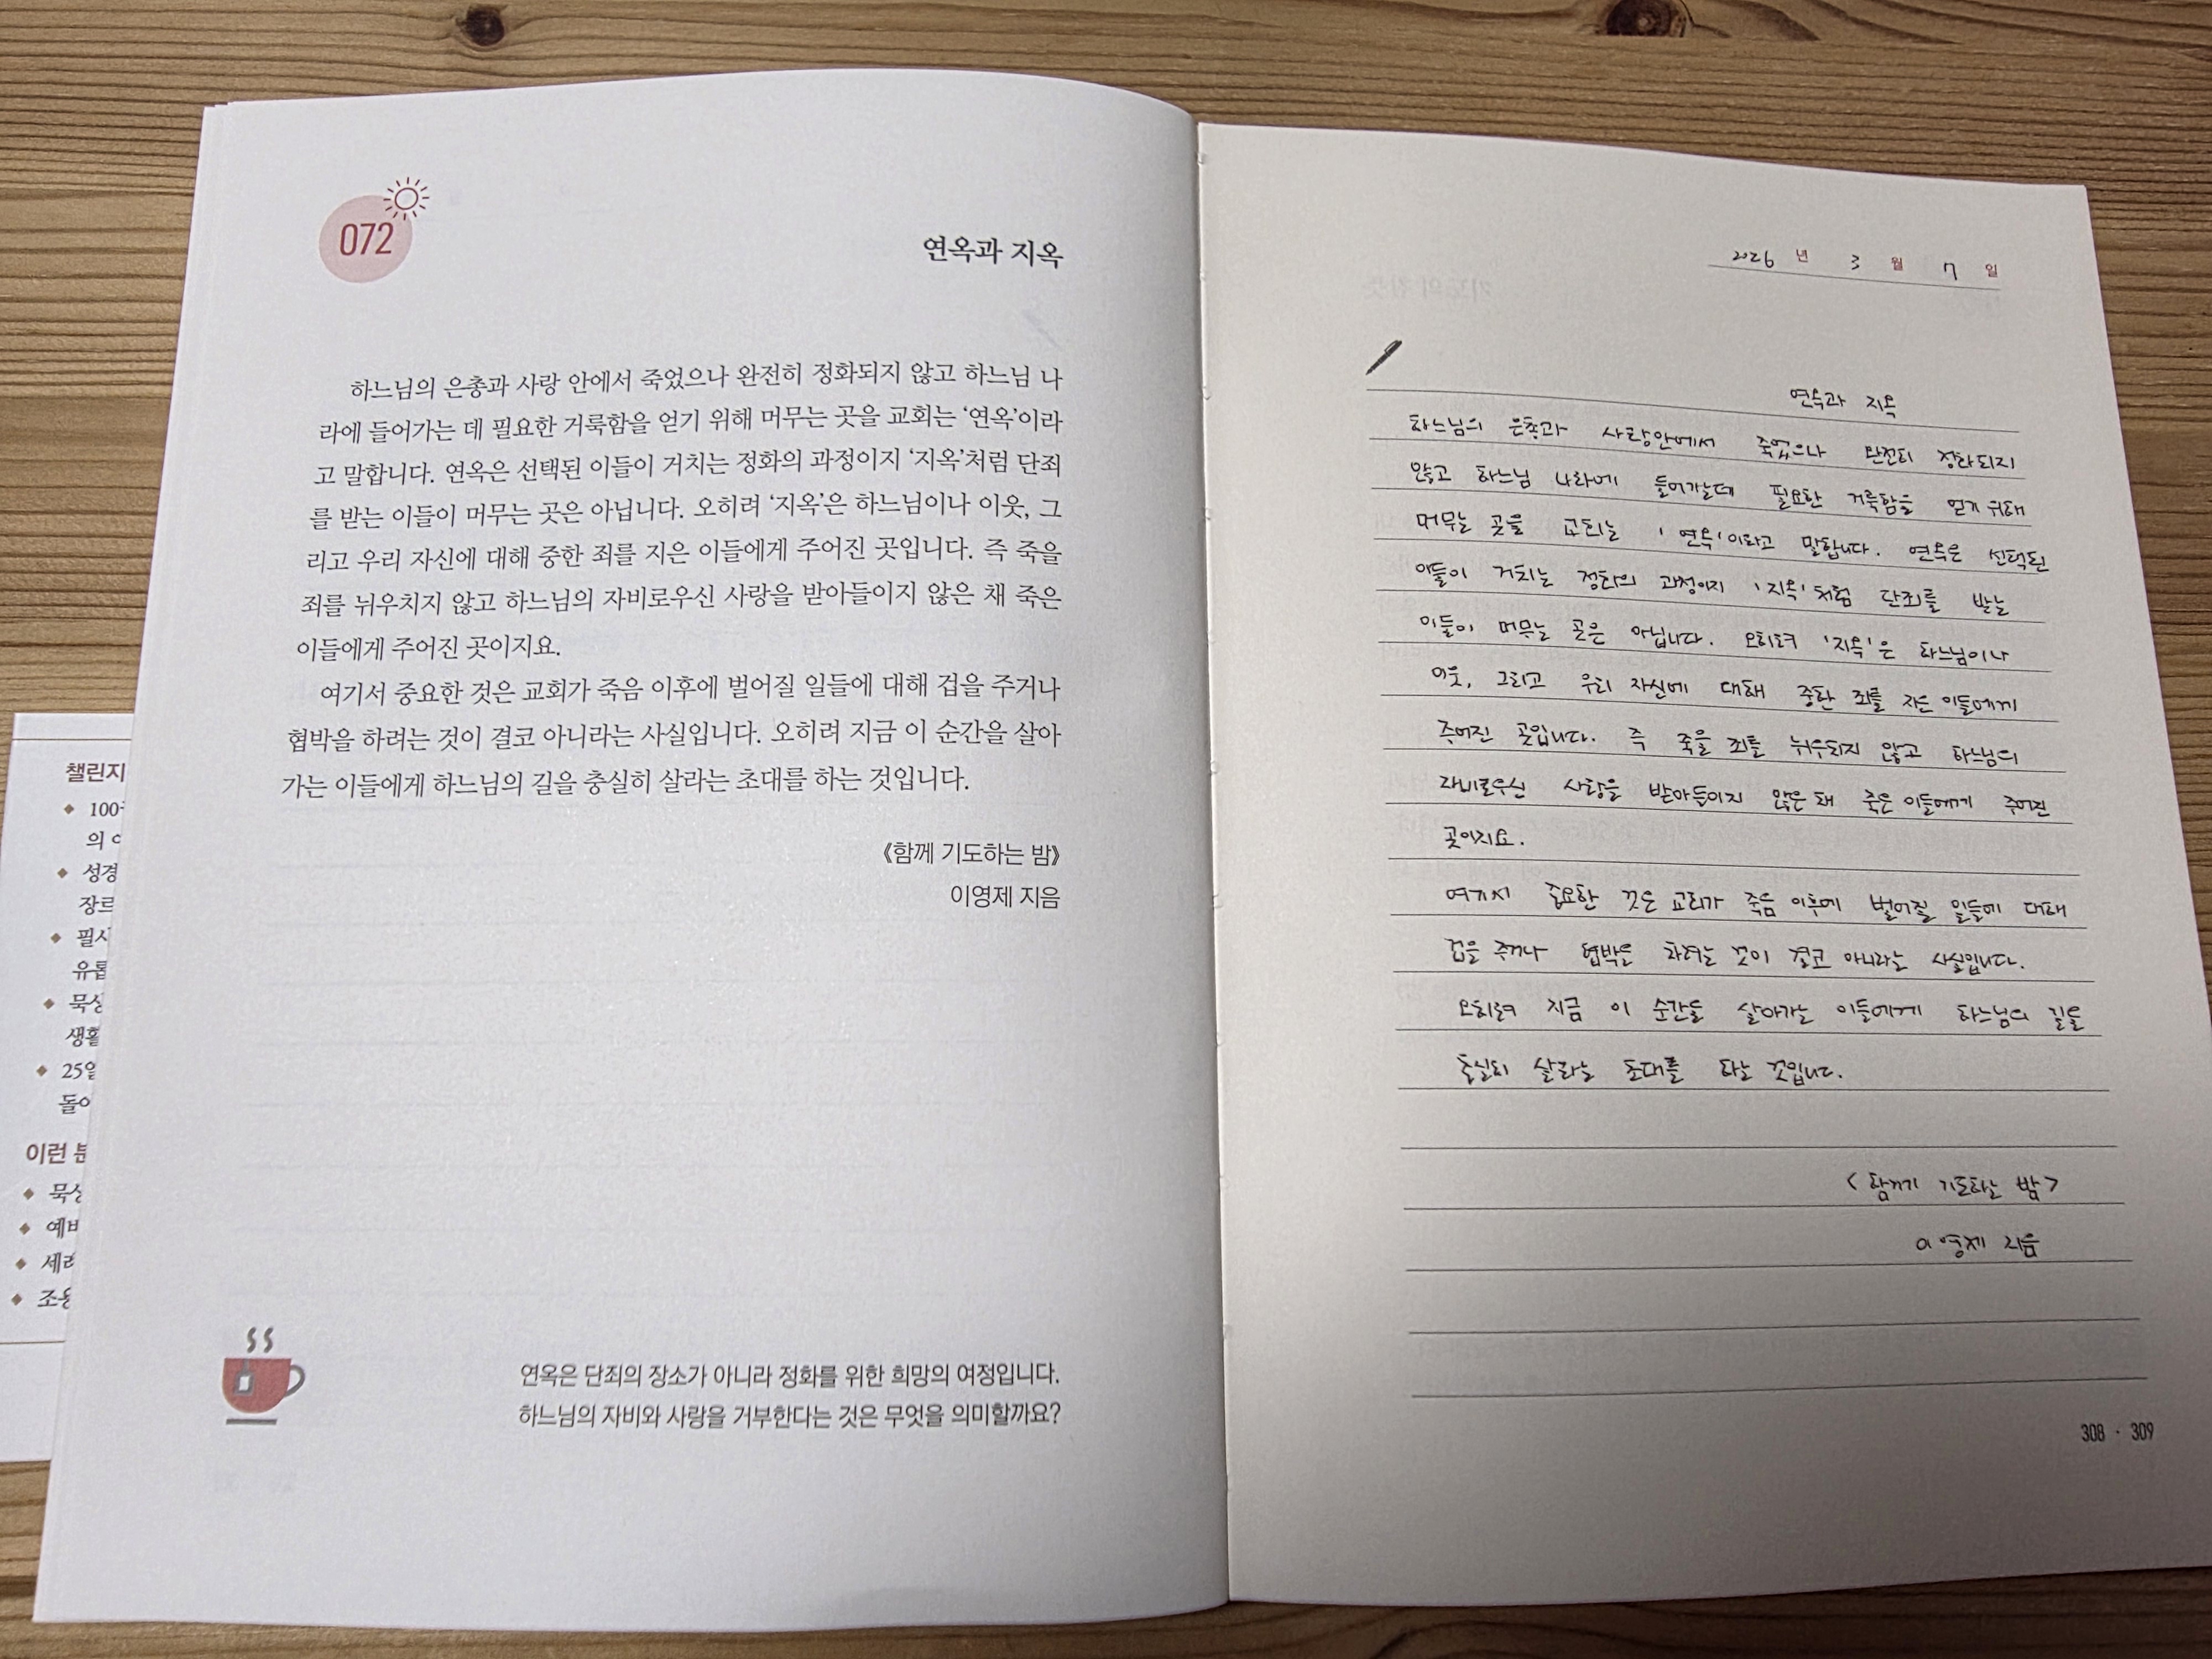 072
연옥과 지옥
하느님의 은총과 사랑 안에서 죽었으나 완전히 정화되지 않고 하느님 나
라에 들어가는 데 필요한 거룩함을 얻기 위해 머무는 곳을 교회는 ‘연옥’이라
고 말합니다. 연옥은 선택된 이들이 거치는 정화의 과정이지 ‘지옥’처럼 단죄
를 받는 이들이 머무는 곳은 아닙니다. 오히려 ‘지옥’은 하느님이나 이웃, 그
리고 우리 자신에 대해 중한 죄를 지은 이들에게 주어진 곳입니다. 즉 죽을
죄를 뉘우치지 않고 하느님의 자비로우신 사랑을 받아들이지 않은 채 죽은
이들에게 주어진 곳이지요.
여기서 중요한 것은 교회가 죽음 이후에 벌어질 일들에 대해 겁을 주거나
협박을 하려는 것이 결코 아니라는 사실입니다. 오히려 지금 이 순간을 살아
가는 이들에게 하느님의 길을 충실히 살라는 초대를 하는 것입니다.
《함께 기도하는 밤》
이영제 지음
연옥은 단죄의 장소가 아니라 정화를 위한 희망의 여정입니다.
하느님의 자비와 사랑을 거부한다는 것은 무엇을 의미할까요?
챌린지
100
의
성경
장르
필사
유럽
묵상
생활
25일
돌아
이런
묵상
예비
세례
조용
2026 년 3 월 7 일
연옥과 지옥
하느님의 은총과 사랑안에서 죽었으나 완전히 정화되지
않고 하느님 나라에 들어가는데 필요한 거룩함을 얻기 위해
머무는 곳을 교회는 '연옥'이라고 말합니다. 연옥은 선택된
이들이 거치는 정화의 과정이지 '지옥'처럼 단죄를 받는
이들이 머무는 곳은 아닙니다. 오히려 '지옥'은 하느님이나
이웃, 그리고 우리 자신에 대해 중한 죄를 지은 이들에게
주어진 곳입니다. 즉 죽을 죄를 뉘우치지 않고 하느님의
자비로우신 사랑을 받아들이지 않은 채 죽은 이들에게 주어진
곳이지요.
여기서 중요한 것은 교회가 죽음 이후에 벌어질 일들에 대해
겁을 주거나 협박을 하려는 것이 결코 아니라는 사실입니다.
오히려 지금 이 순간을 살아가는 이들에게 하느님의 길을
충실히 살라는 초대를 하는 것입니다.
<함께 기도하는 밤>
이영제 지음
308 · 309